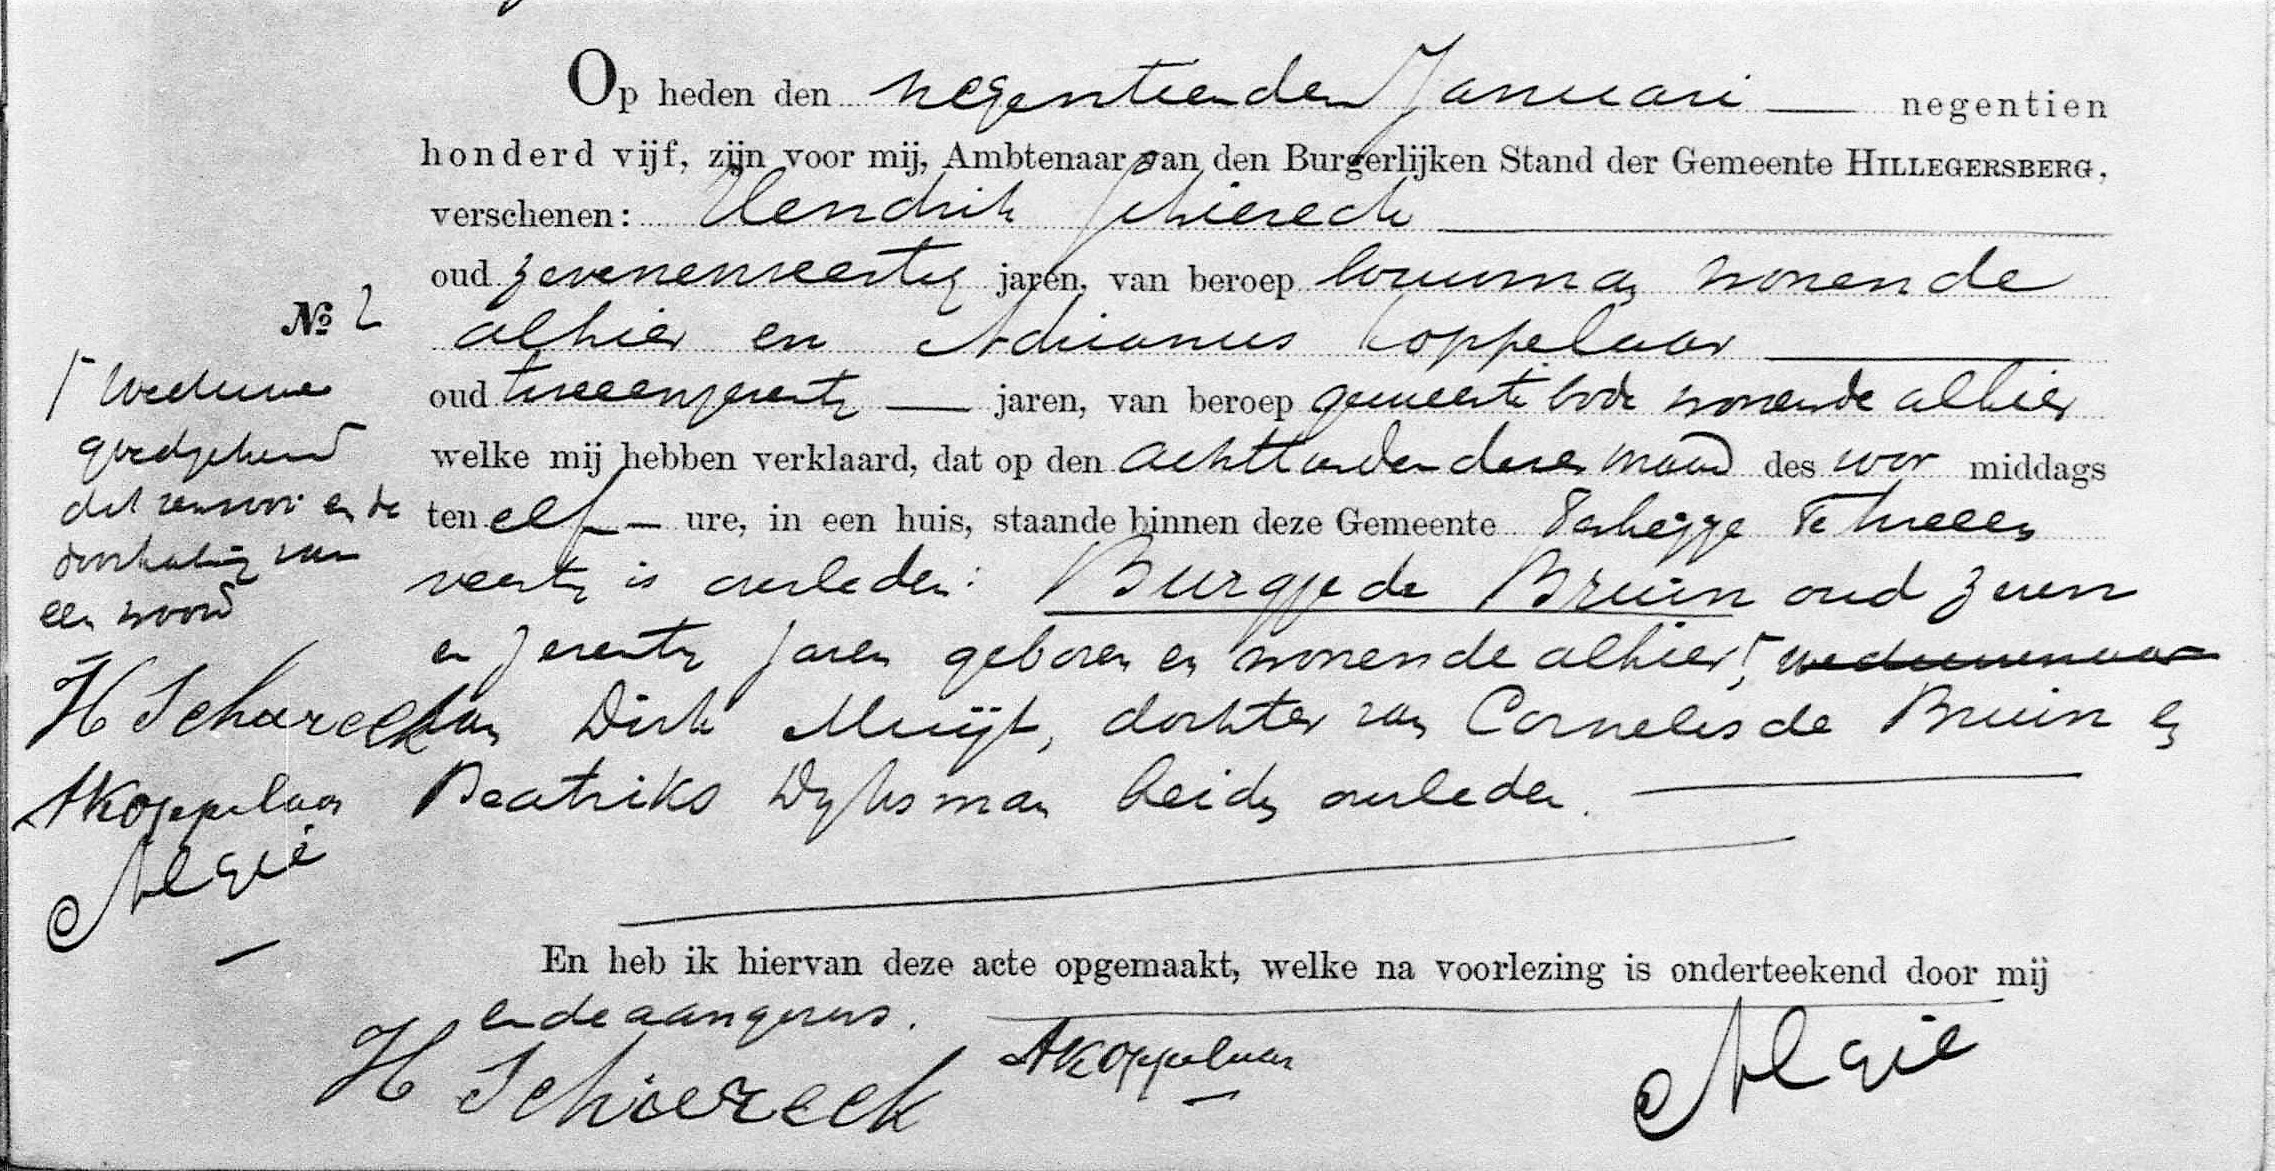 Op heden den negentienden Januari negentien
honderd vijf, zijn voor mij, Ambtenaar van den Burgerlijken Stand der Gemeente HILLEGERSBERG,
verschenen: Hendrik Schiereck
oud zevenenveertig jaren, van beroep bouwman wonende
No 2
alhier en Adrianus Koppelaar
oud tweeenzeventig jaren, van beroep gemeentebode wonende alhier
welke mij hebben verklaard, dat op den achttienden dezer maand des voor middags
ten elf ure, in een huis, staande binnen deze Gemeente Terbregge No tweeen
veertig is overleden: Burgje de Bruin oud zeven
en zeventig jaren geboren en wonende alhier, weduwnaar
van Dirk Muijt, dochter van Cornelis de Bruin en
Beatriks Dijksman beiden overleden.
En heb ik hiervan deze acte opgemaakt, welke na voorlezing is onderteekend door mij
en de aangevers.
H Schiereck AKoppelaar Algie
weduwe
goedgekeurd
dit renvooi en de
doorhaling van
een woord
H Schiereck
AKoppelaar
Algie